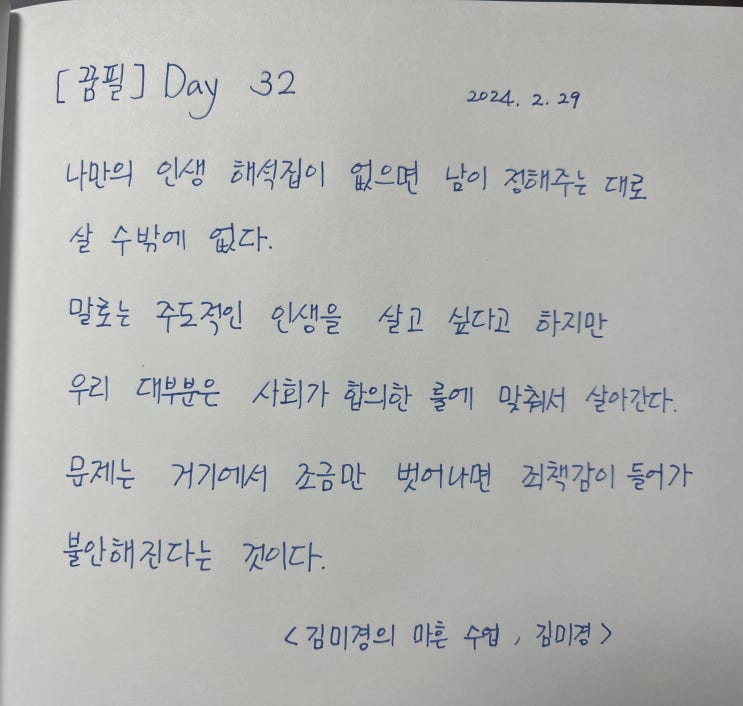 [꿈필] Day 32
2024. 2. 29
나만의 인생 해석집이 없으면 남이 정해주는 대로
살 수밖에 없다.
말로는 주도적인 인생을 살고 싶다고 하지만
우리 대부분은 사회가 합의한 룰에 맞춰서 살아간다.
문제는 거기에서 조금만 벗어나면 죄책감이 들어가
불안해진다는 것이다.
<김미경의 마흔 수업, 김미경>